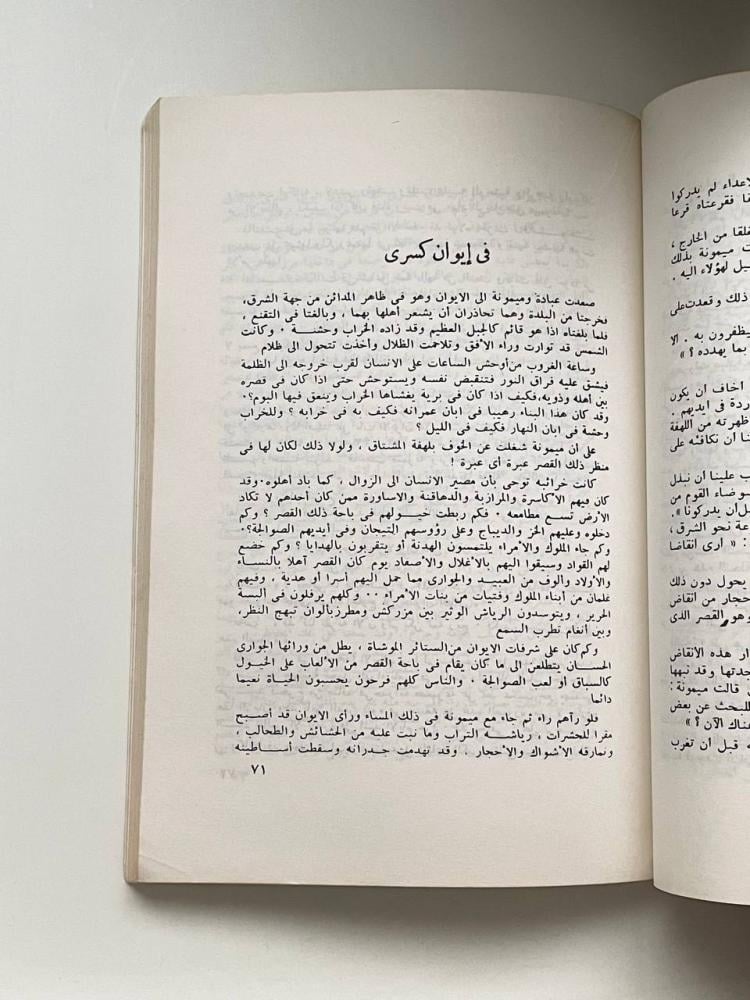 فى إيوان كسرى
صعدت عبادة وميمونة الى الايوان وهو فى ظاهر المدائن من جهة الشرق،
فخرجتا من البلدة وهما تحاذران أن يشعر أهلها بهما ، وبالغتا فى التقنع ،
فلما بلغتاه اذا هو قائم كالجبل العظيم وقد زاده الخراب وحشــة ٠ وكانت
الشمس قد توارت وراء الأفق وتلاحمت الظلال وأخذت تتحول الى ظلام
وساعة الغروب من أوحش الساعات على الانسان لقرب خروجه الى الظلمة
فيشق عليه فراق النور فتنقبض نفسه ويستوحش حتى اذا كان فى قصره
بين أهله وذويه،فكيف اذا كان فى برية يغشاها الخراب وينعق فيها البوم؟٠
وقد كان هذا البناء رهيبا فى ابان عمرانه فكيف به فى خرابه ؟ وللخراب
وحشة فى ابان النهار فكيف فى الليل ؟
على أن ميمونة شغلت عن الخوف بلهفة المشتاق ، ولولا ذلك لكان لها فى
منظر ذلك القصر عبرة أى عبرة !
كانت خرائبه توحى بأن مصير الانسان الى الزوال ، كما باد أهلوه٠وقد
كان فيهم الأكاسرة والمرازبة والدهاقنة والاساورة ممن كان أحدهم لا تكاد
الأرض تسع مطامعه ٠ فكم ربطت خيــولهم فى باحة ذلك القصر ؟ وكم
دخلوه وعليهم الخز والديباج وعلى رؤوسهم التيجان وفى أيديهم الصوالجة؟
وكم جاء الملوك والأمراء يلتمسون الهدنة أو يتقربون بالهدايا ؟ وكم خضع
لهم القواد وسيقوا اليهم بالأغلال والأصفاد يوم كان القصر آهلا بالنســاء
والأولاد والوف من العبيــد والجوارى مما حمل اليهم أسرا أو هدية ، وفيهم
غلمان من أبناء الملوك وفتيات من بنات الأمراء ٠٠ وكلهم يرفلون فى البسة
الحرير ، ويتوسدون الرياش الوثير بين مزركش ومطرز بالوان تبهج النظر،
وبين أنغام تطرب السمع
وكم كان على شرفات الايوان من الستائر الموشاة ، يطل من ورائها الجوارى
الحســان يتطلعن الى ما كان يقام فى باحة القصر من الألعاب على الخيــول
كالسباق أو لعب الصوالجة ٠ والناس كلهم فرحون يحسبون الحياة نعيما
دائما
فلو رآهم راء ثم جاء مع ميمونة فى ذلك المساء ورأى الايوان قد أصبح
مقرا للحشرات ، رياشه التراب وما نبت عليه من الحشائش والطحالب ،
ونمارقه الأشواك والأحجار ٠ وقد تهدمت جدرانه وسقطت أساطينه
٧١
لاعداء لم يدركوا
فقرعناه قرعا
من الخارج ،
ميمونة بذلك
لهؤلاء اليه ٠
ذلك وقعدت على
يظفرون به ٠ الا
بما يهدده ؟ »
اخاف أن يكون
فى ايديهم ٠
ظهرته من اللهفة
أن نكافئه على
علينا أن نبذل
ضوضاء القوم من
أن يدركونا »٠
نحو الشرق ،
: « ارى انقاضا
يحول دون ذلك
حجار من أنقاض
وهو القصر الذى
هذه الأنقاض
وقد نبهها
قالت ميمونة :
للبحث عن بعض
الآن ؟ »
قبل أن تغرب